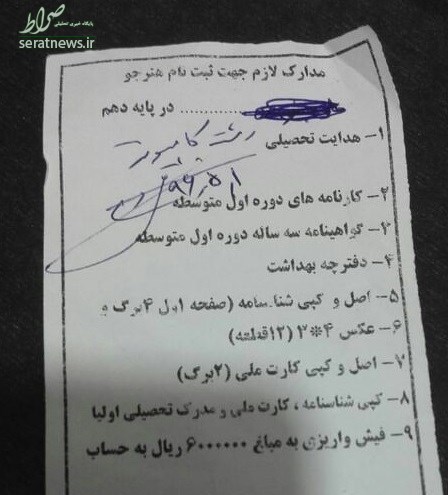 صراط
پایگاه خبری تحلیلی
seratnews.ir
مدارک لازم جهت ثبت نام هنرجو
.............. در پایه دهم
۱- هدایت تحصیلی
رشته کامپیوتر
۲- کارنامه های دوره اول متوسطه
۳- گواهینامه سه ساله دوره اول متوسطه
۴- دفترچه بهداشت
۵- اصل و کپی شناسنامه (صفحه اول ۴برگ و
۶- عکس ۴*۳ (۱۲قطعه)
۷- اصل و کپی کارت ملی (۲برگ)
۸- کپی شناسنامه ، کارت ملی و مدرک تحصیلی اولیا
۹- فیش واریزی به مبلغ ۶۰۰۰۰۰۰ ریال به حساب